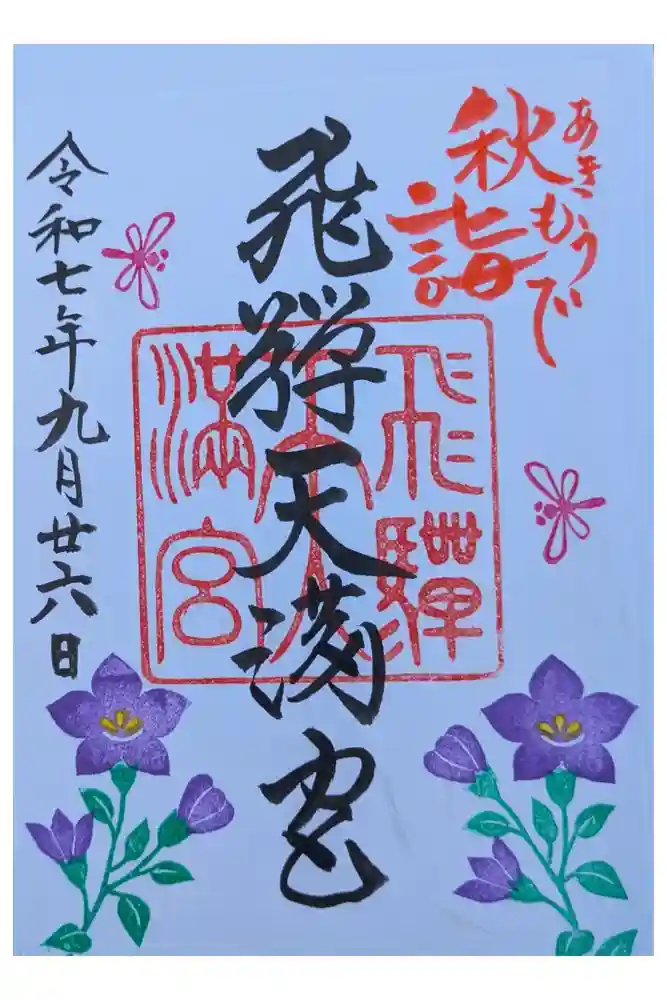 あきもうで
秋詣
飛騨天満宮
飛驒天満宮
令和七年九月廿六日